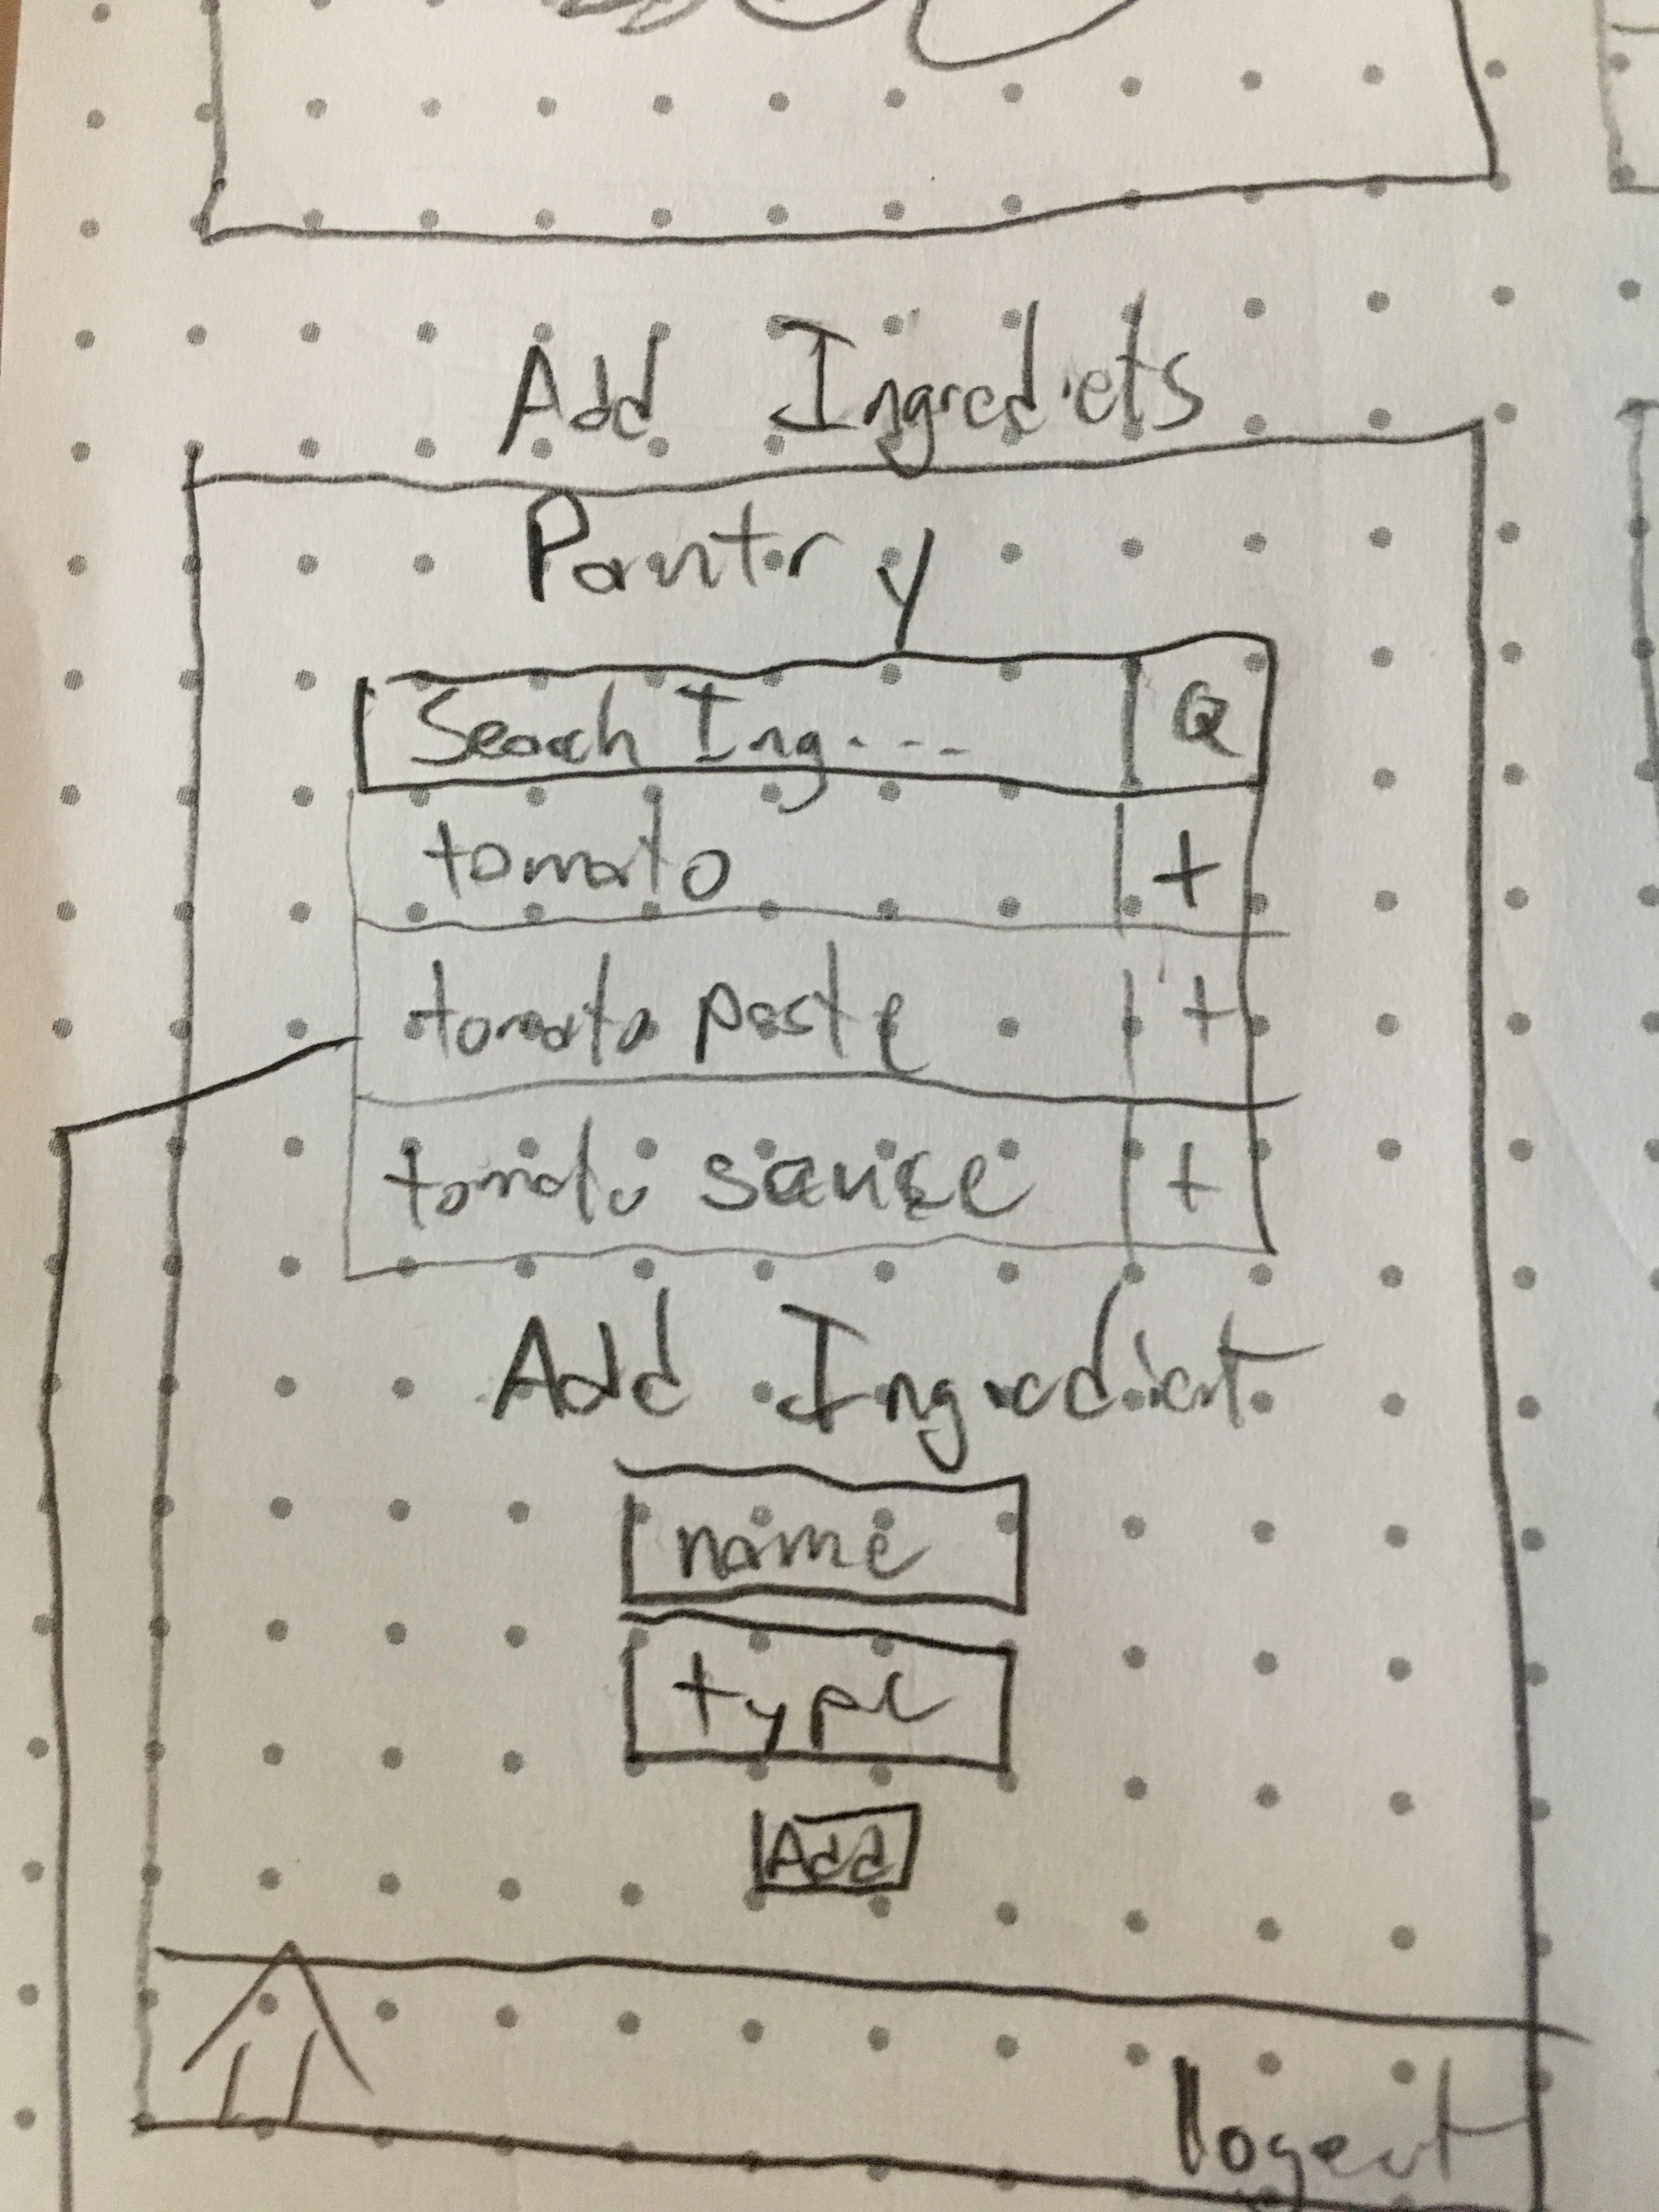 Add Ingrediets
Pantry
Search Ing....
tomato +
tomato paste +
tomato sause +
Add Ingredient
name
type
Add
logout